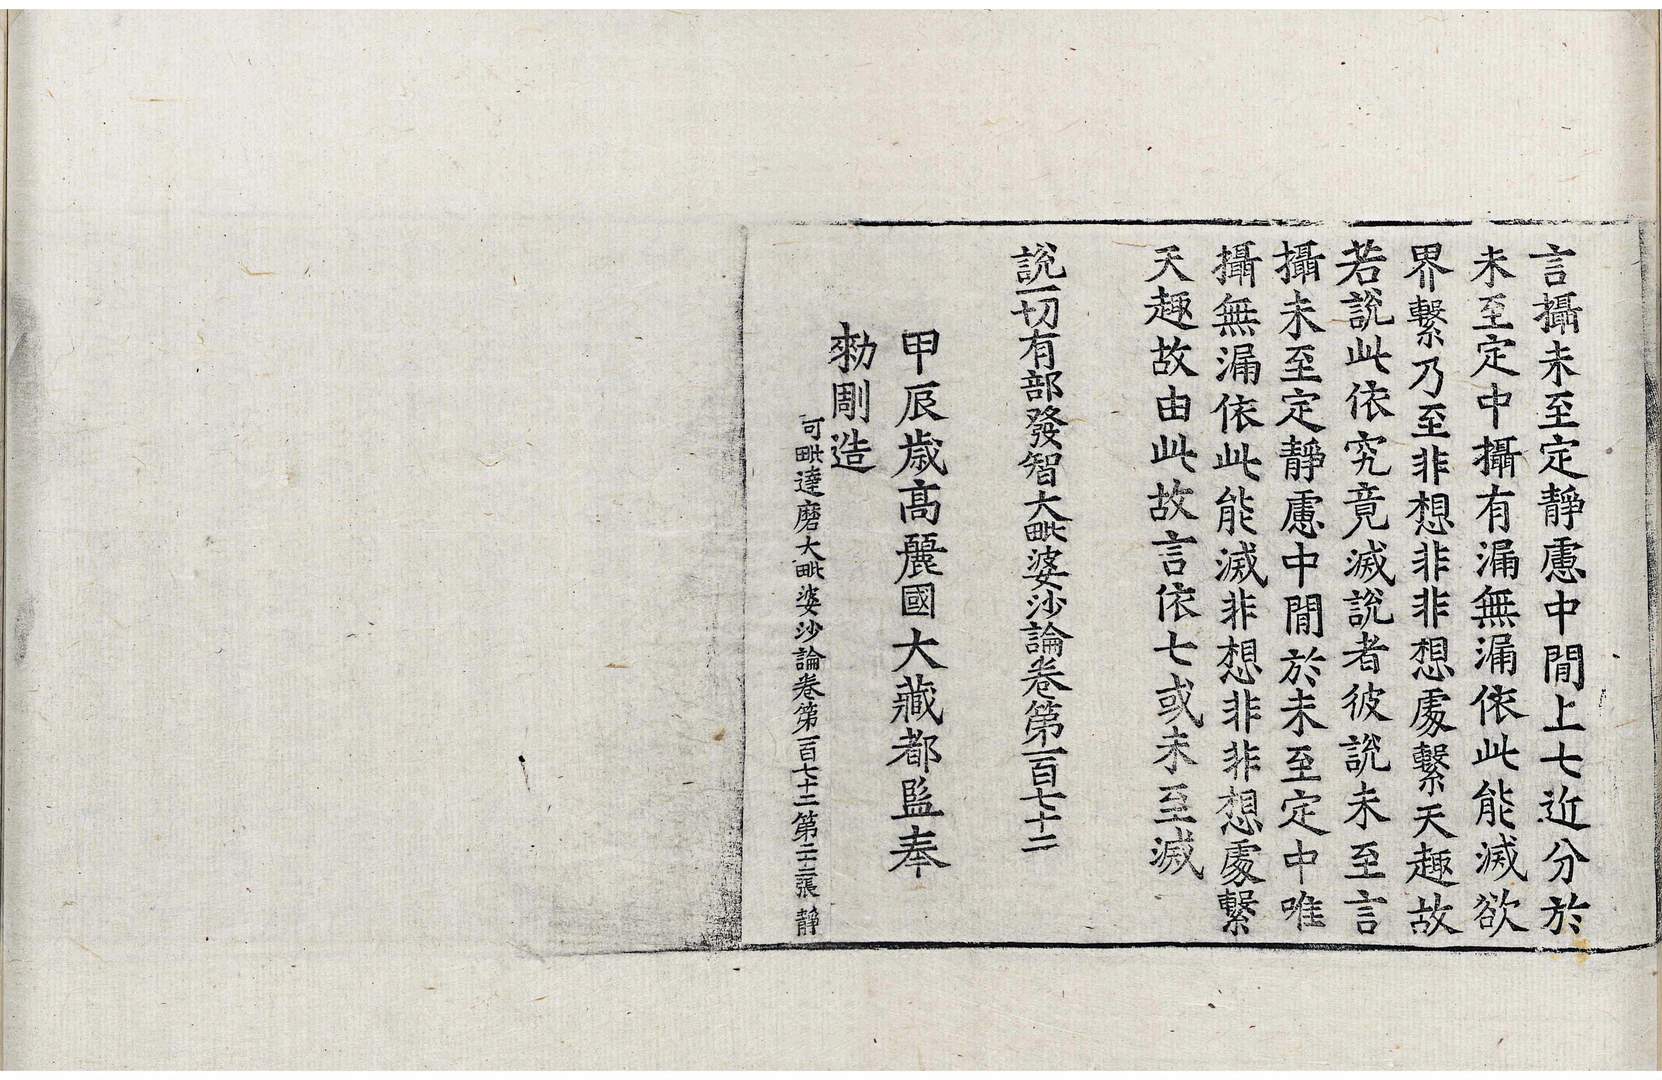 言攝未至定靜慮中閒上七近分於
未至定中攝有漏無漏依此能滅欲
界繫乃至非想非非想處繫天趣故
若說此依究竟滅說者彼說未至言
攝未至定靜慮中閒於未至定中唯
攝無漏依此能滅非想非非想處繫
天趣故由此故言依七或未至滅
說一切有部發智大毗婆沙論卷第一百七十二
甲辰歳高麗國大藏都監奉
勑彫造
可毗達磨大毗婆沙論卷第一百七十二 第二十三張 靜